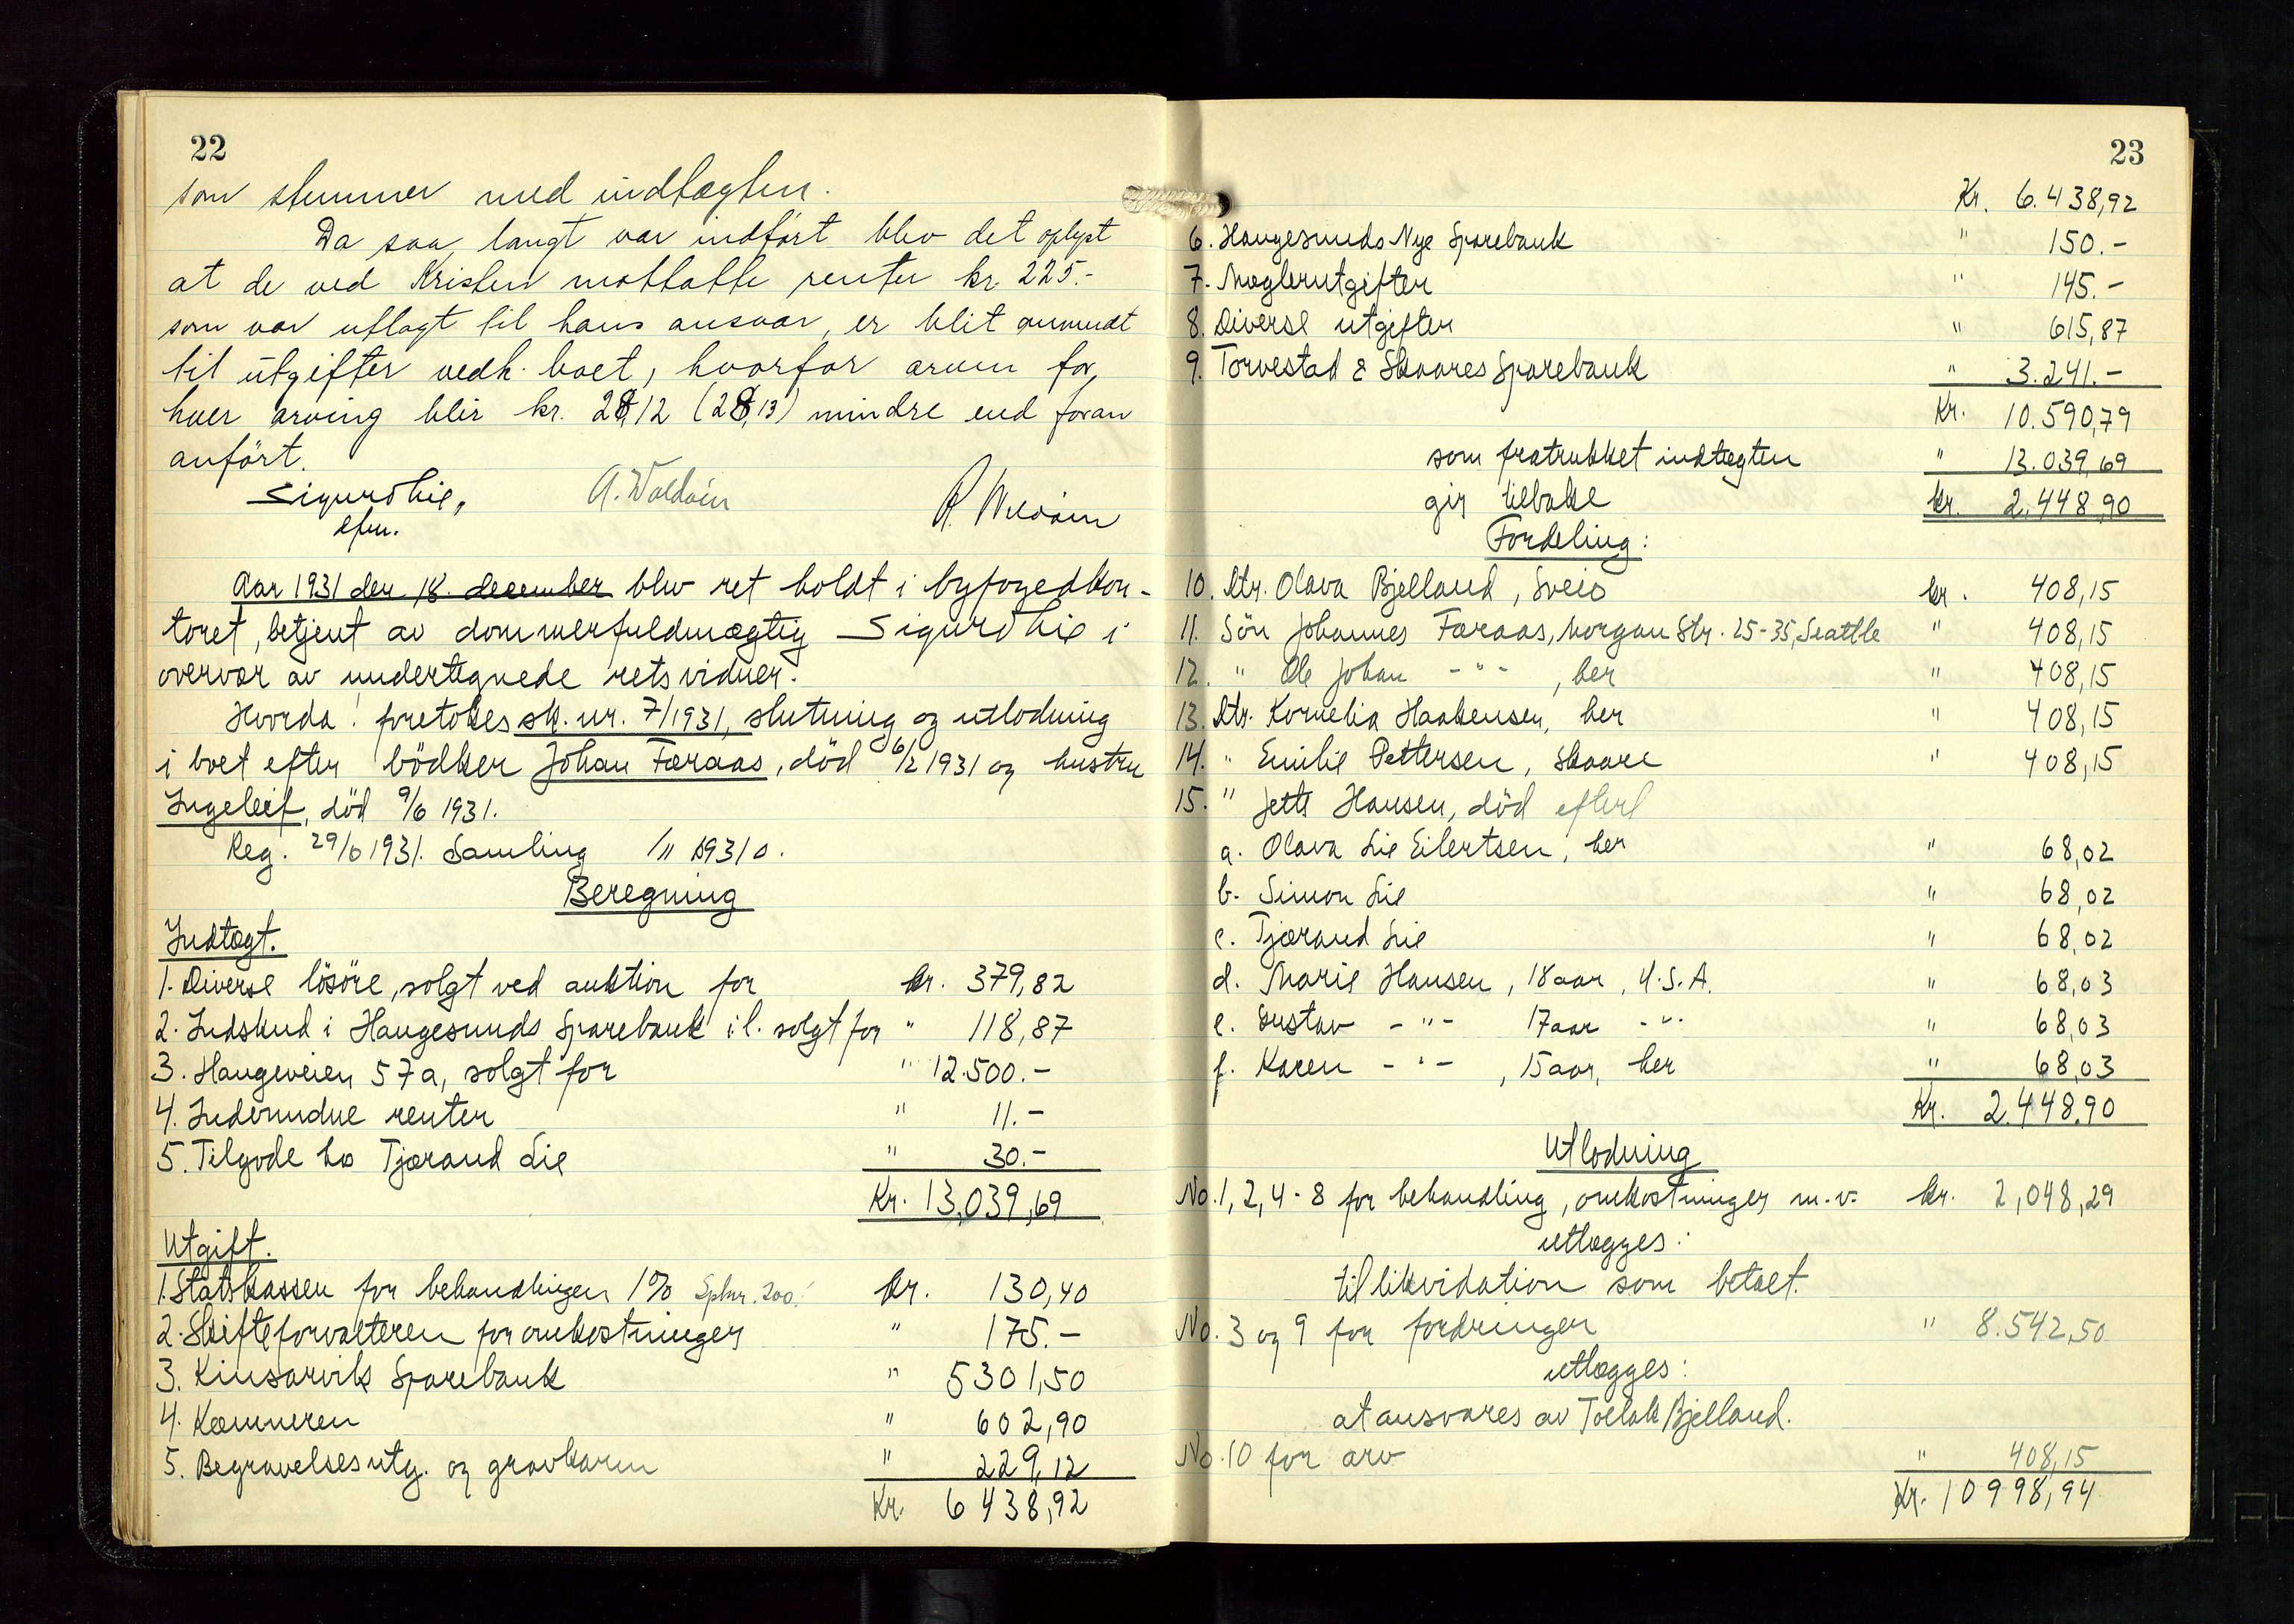 22
som stemmer med indtægten.
Da saa langt var indført blev det oplyst
at de ved Kristen mottatte renter kr. 225.-
som var utlagt til hans ansvar, er blit anvendt
til utgifter vedk. boet, hvorfor arven for
hver arving blir kr. 28,12 (28,13) mindre end foran
anført.
Sigurd Lie,
efm.
A. Waldein
Aar 1931 den 18. december blev ret holdt i byfogedkon-
toret, betjent av dommerfuldmægtig Sigurd Lie i
overvær av undertegnede retsvidner.
Hvorda: foretokes sk. nr. 7/1931, slutning og utlodning
i boet efter bödker Johan Færaas, död 6/2 1931 og hustru
Ingeleif, död 9/6 1931.
Reg. 29/6 1931. Samling 1/11 1931 o.
Beregning
Indtægt.
1. Diverse lösöre, solgt ved auktion for kr. 379,82
2. Indskud i Haugesunds Sparebank i l. solgt for " 118,87
3. Haugeveien 57a, solgt for " 12.500.-
4. Indvundne renter " 11.-
5. Tilgode hos Tjærand Lie " 30.-
Kr. 13,039,69
Utgift.
1. Statskassen for behandlingen 1% kr. 130,40
2. Skifteforvalteren for omkostninger " 175.-
3. Kinsarvik Sparebank " 5301,50
4. Kæmneren " 602,90
5. Begravelsesutg. og gravkarm " 229,12
Kr. 6 438,92
23
Kr. 6.438,92
6. Haugesunds Nye Sparebank " 150.-
7. Mæglerutgifter " 145.-
8. Diverse utgifter " 615,87
9. Torvestad & Skaares Sparebank " 3.241.-
Kr. 10.590,79
som fratrukket indtægten " 13.039,69
gir tilbake kr. 2,448,90
Fordeling:
10. Dtr. Olava Bjelland, Sveio kr. 408,15
11. Sön Johannes Færaas, Morgan Str. 25-35, Seattle " 408,15
12. " Ole Johan - " - , her " 408,15
13. Dtr. Kornelia Haakensen, her " 408,15
14. " Emilie Pettersen, Skaare " 408,15
15. " Jette Hansen, död efterl
a. Olava Lie Eilertsen, her " 68,02
b. Simon Lie " 68,02
c. Tjærand Lie " 68,02
d. Marie Hansen, 18 aar, U.S.A. " 68,03
e. Gustav - " - 17 aar - " - " 68,03
f. Karen - " - , 15 aar, her " 68,03
Kr. 2.448,90
Utlodning
No. 1, 2, 4 - 8 for behandling, omkostninger m.v. kr. 2,048,29
utlægges:
til likvidation som betalt.
No. 3 og 9 for fordringer " 8.542,50
utlægges:
at ansvares av Tollak Bjelland.
No. 10 for arv " 408,15
Kr. 10998,94